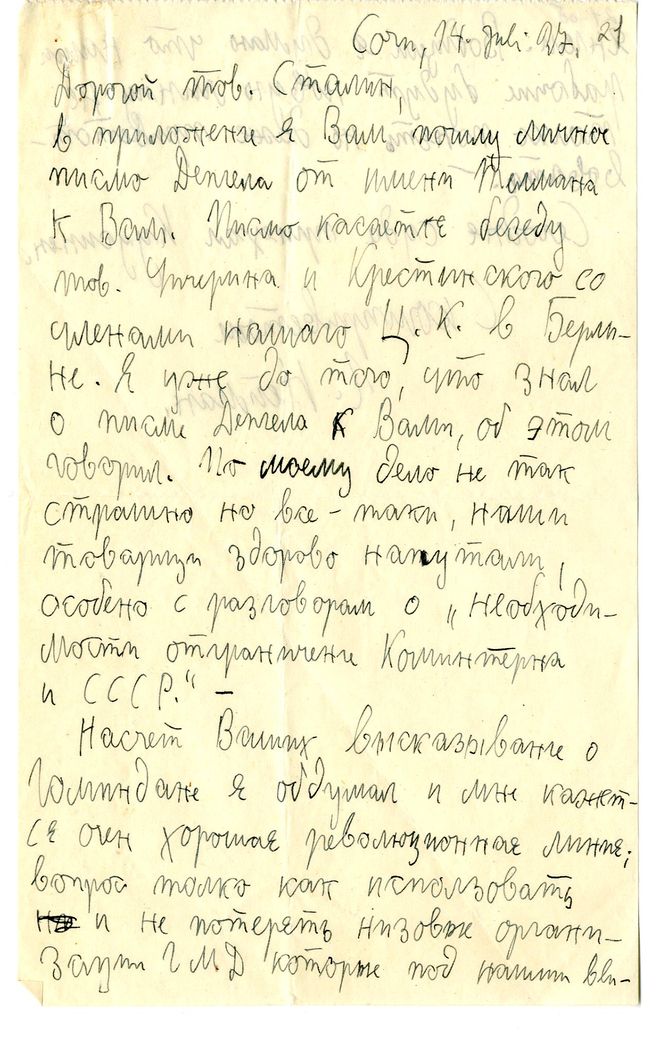 Сочи, 14. Juli 27. 21
Дорогой тов. Сталин,
в приложение я Вам пошлу личное
писмо Денгела от имени Телмана
к Вам. Писмо касается беседу
тов. Чичерина и Крестинского со
членами нашаго Ц. К. в Берли-
не. Я уже до того, что знал
о писме Денгела к Вами, об этом
говорил. По моему дело не так
страшно но все-таки, наши
товарищи здорово напутали,
особено с разговорам о „необходи-
мости отграничени Коминтерна
и СССР." –
Насчет Ваших высказывание о
Гоминдане я обдумал и мне кажет-
ся очен хорошая революционная линия;
вопрос толко как использовать
и не потерять низовые органи-
зации ГМД которые под нашим вли-